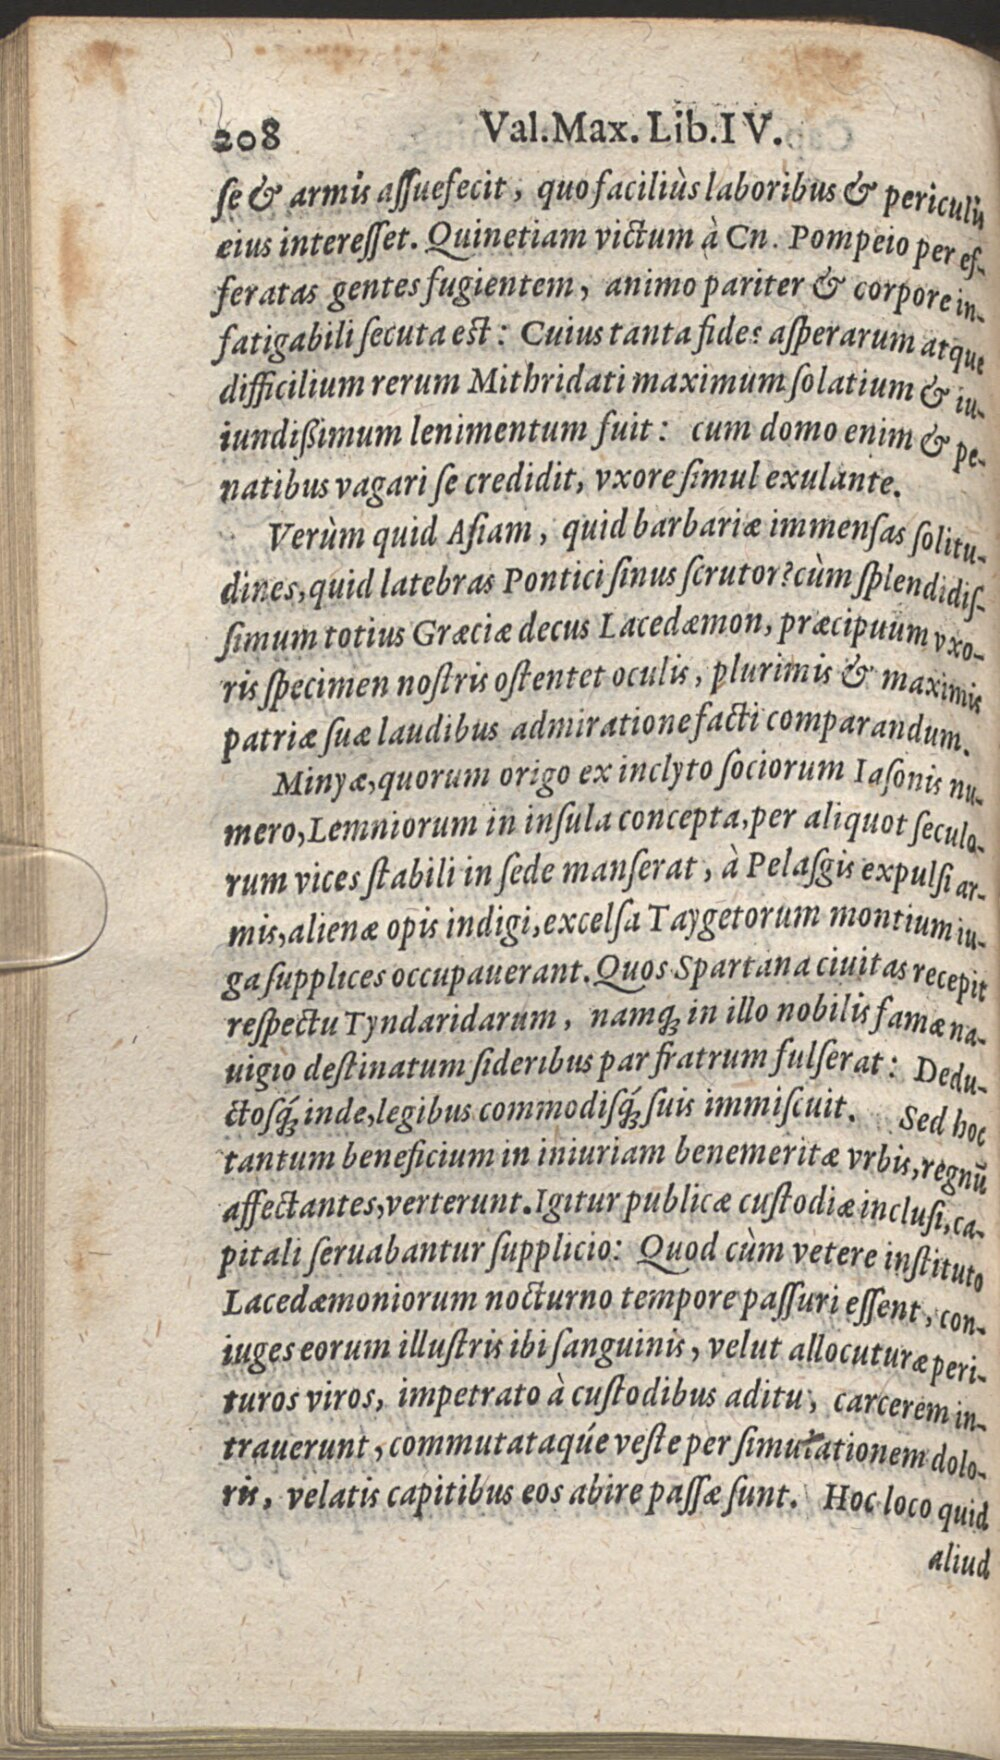 208 Val.Max. Lib.IV.
ſe & armis aſſuefecit, quo faciliùs laboribus & periculis
eius intereſſet. Quinetiam victum à Cn. Pompeio per ef-
feratas gentes fugientem, animo pariter & corpore in-
fatigabili ſecuta est: Cuius tanta fides aſperarum atque
difficilium rerum Mithridati maximum ſolatium & iu-
iundißimum lenimentum fuit: cum domo enim & pe-
natibus vagari ſe credidit, vxore ſimul exulante.
Verùm quid Aſiam, quid barbariæ immenſas ſolitu-
dines, quid latebras Pontici ſinus ſcrutor? cùm ſplendidiſ-
ſimum totius Græciæ decus Lacedæmon, præcipuum vxo-
ris ſpecimen noſtris oſtentet oculis, plurimis & maximis
patriæ ſuæ laudibus admiratione facti comparandum.
Minyæ, quorum origo ex inclyto ſociorum Iaſonis nu-
mero, Lemniorum in inſula concepta, per aliquot ſeculo-
rum vices ſtabili in ſede manſerat, à Pelaſgis expulſi ar-
mis, alienæ opis indigi, excelſa Taygetorum montium iu-
ga ſupplices occupauerant. Quos Spartana ciuitas recepit
reſpectu Tyndaridarum, namq́; in illo nobilis famæ na-
uigio deſtinatum ſideribus par fratrum fulſerat: Dedu-
ctoſq́; inde, legibus commodiſq́; ſuis immiſcuit. Sed hoc
tantum beneficium in iniuriam benemeritæ vrbis, regnũ
affectantes, verterunt. Igitur publicæ cuſtodiæ incluſi, ca-
pitali ſeruabantur ſupplicio: Quod cùm vetere inſtituto
Lacedæmoniorum nocturno tempore paſſuri eſſent, con-
iuges eorum illuſtris ibi ſanguinis, velut allocuturæ peri-
turos viros, impetrato à cuſtodibus aditu, carcerem in-
trauerunt, commutataqúe veſte per ſimulationem dolo-
ris, velatis capitibus eos abire paſſæ ſunt. Hoc loco quid
aliud